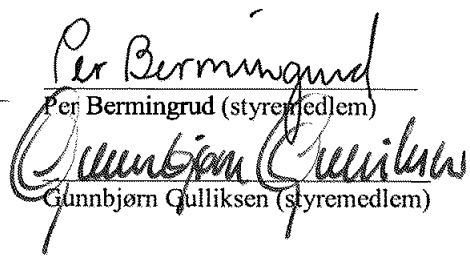 Per Bermingrud
Per Bermingrud (styremedlem)
Gunnbjørn Gulliksen
Gunnbjørn Gulliksen (styremedlem)